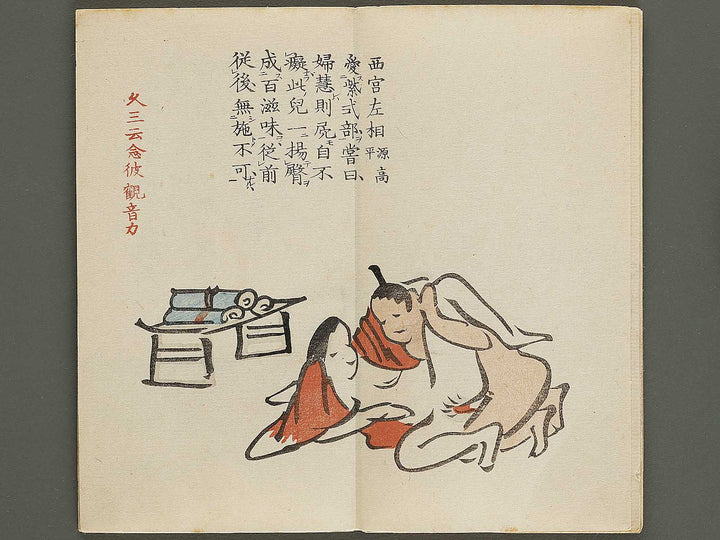 西宮左相 源高
平
愛紫式部嘗曰
婦慧則尻自不
癡此兒一揚臀
成百滋味従前
従後無施不可
久三云念彼観音力